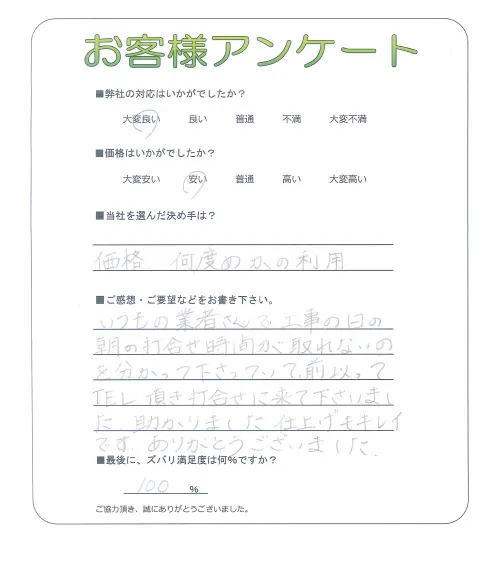 お客様アンケート
■弊社の対応はいかがでしたか？
大変良い 良い 普通 不満 大変不満
■価格はいかがでしたか？
大変安い 安い 普通 高い 大変高い
■当社を選んだ決め手は？
価格、何度めかの利用
■ご感想・ご要望などをお書き下さい。
いつもの業者さんで工事の日の
朝の打合せ時間が取れないの
を分かって下さっていて、前以って
TEL頂き打合せに来て下さいまし
た。助かりました。仕上げもキレイ
です。ありがとうございました。
■最後に、ズバリ満足度は何%ですか？
100 %
ご協力頂き、誠にありがとうございました。